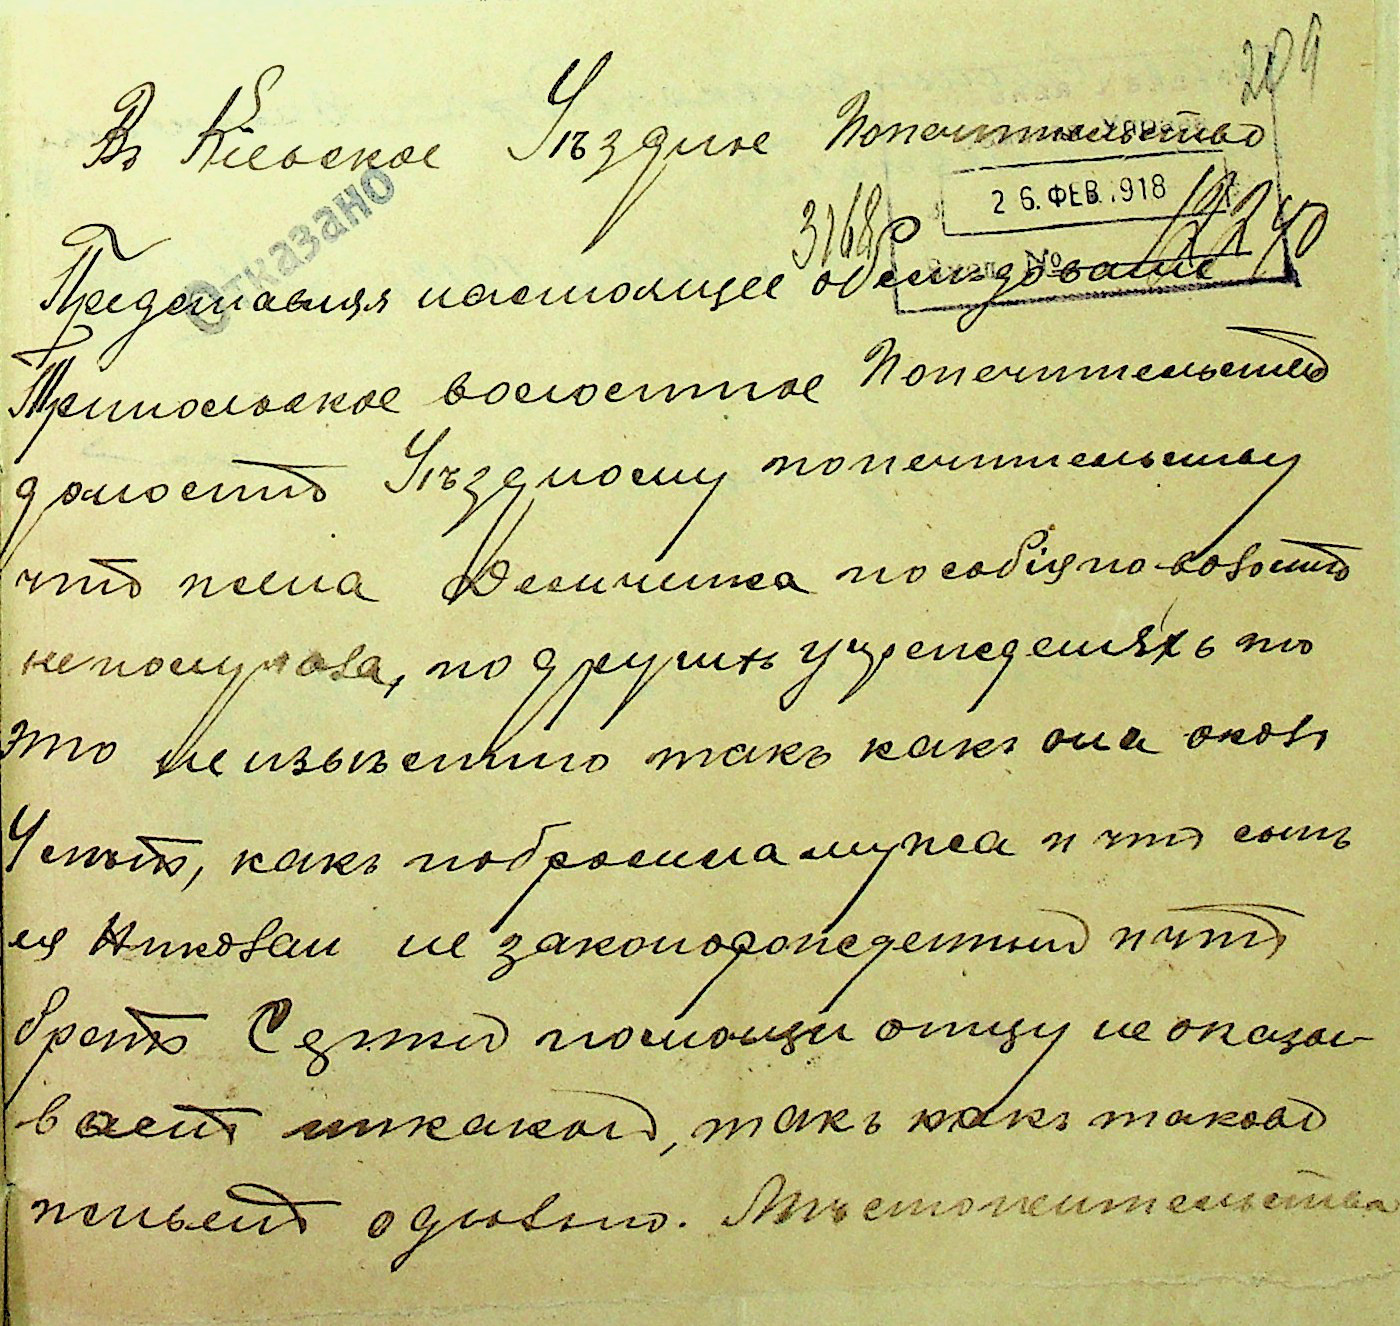 289
Въ Кіевское Уѣздное Попечительство
Отказано
26. ФЕВ. 1918
3168
№ 12240
Представляя настоящее обслѣдованіе
Трипольское волостное Попечительство
доноситъ Уѣздному попечительству
что жена Демченка пособія по волости
не получала, по другимъ учрежденіяхъ то
это неизвѣстно такъ какъ она около
9 лѣтъ, какъ побросила мужа и что сынъ
ея Николай не законорожденный и что
братъ Сергѣй помощи отцу не оказы-
ваетъ никакой, такъ какъ таковой
живетъ отдѣльно. Мѣстожительства